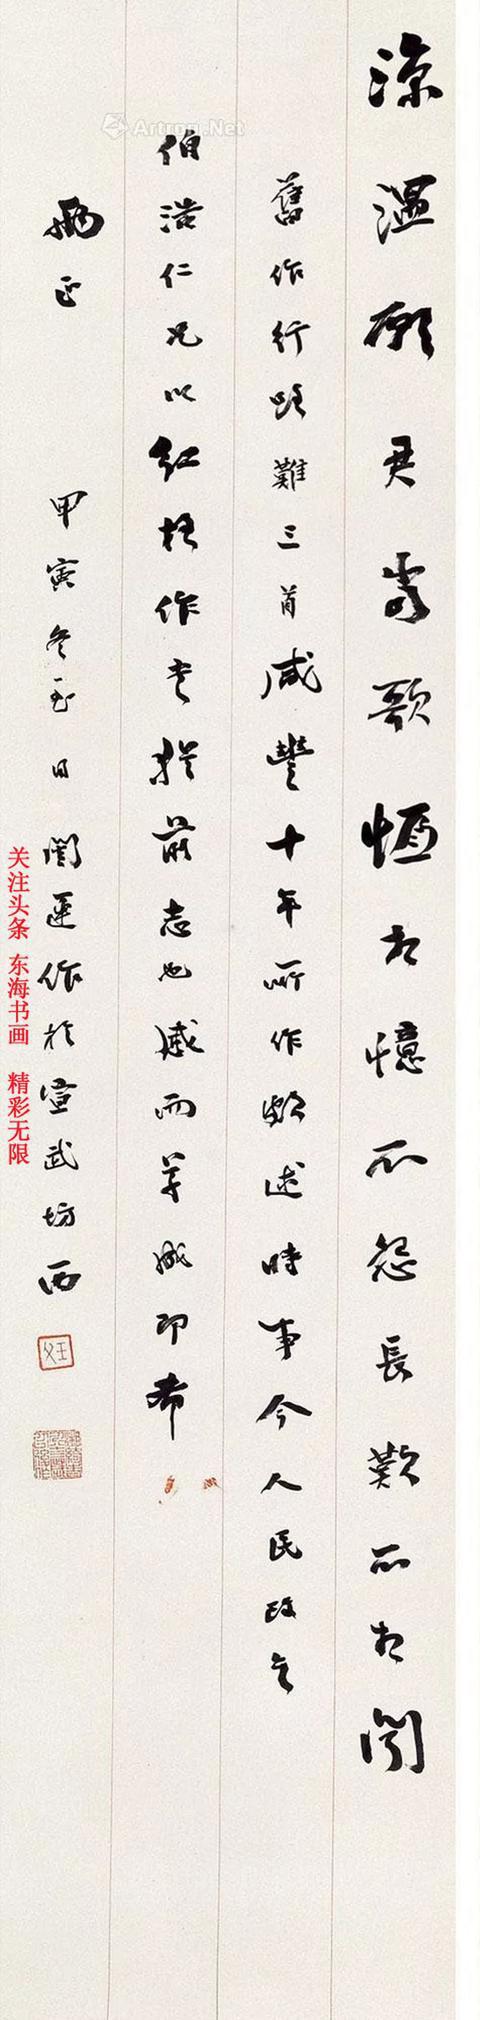 涼溫願君當歌恆相憶不怨長歎不相聞
舊作行路難三首咸豐十年所作頗述時事今人民政
伯浩仁兄以紅格作書前志也感而成即希
正 甲寅冬至日闓運作於宣武坊西
关注头条 东海书画 精彩无限
Artron.Net